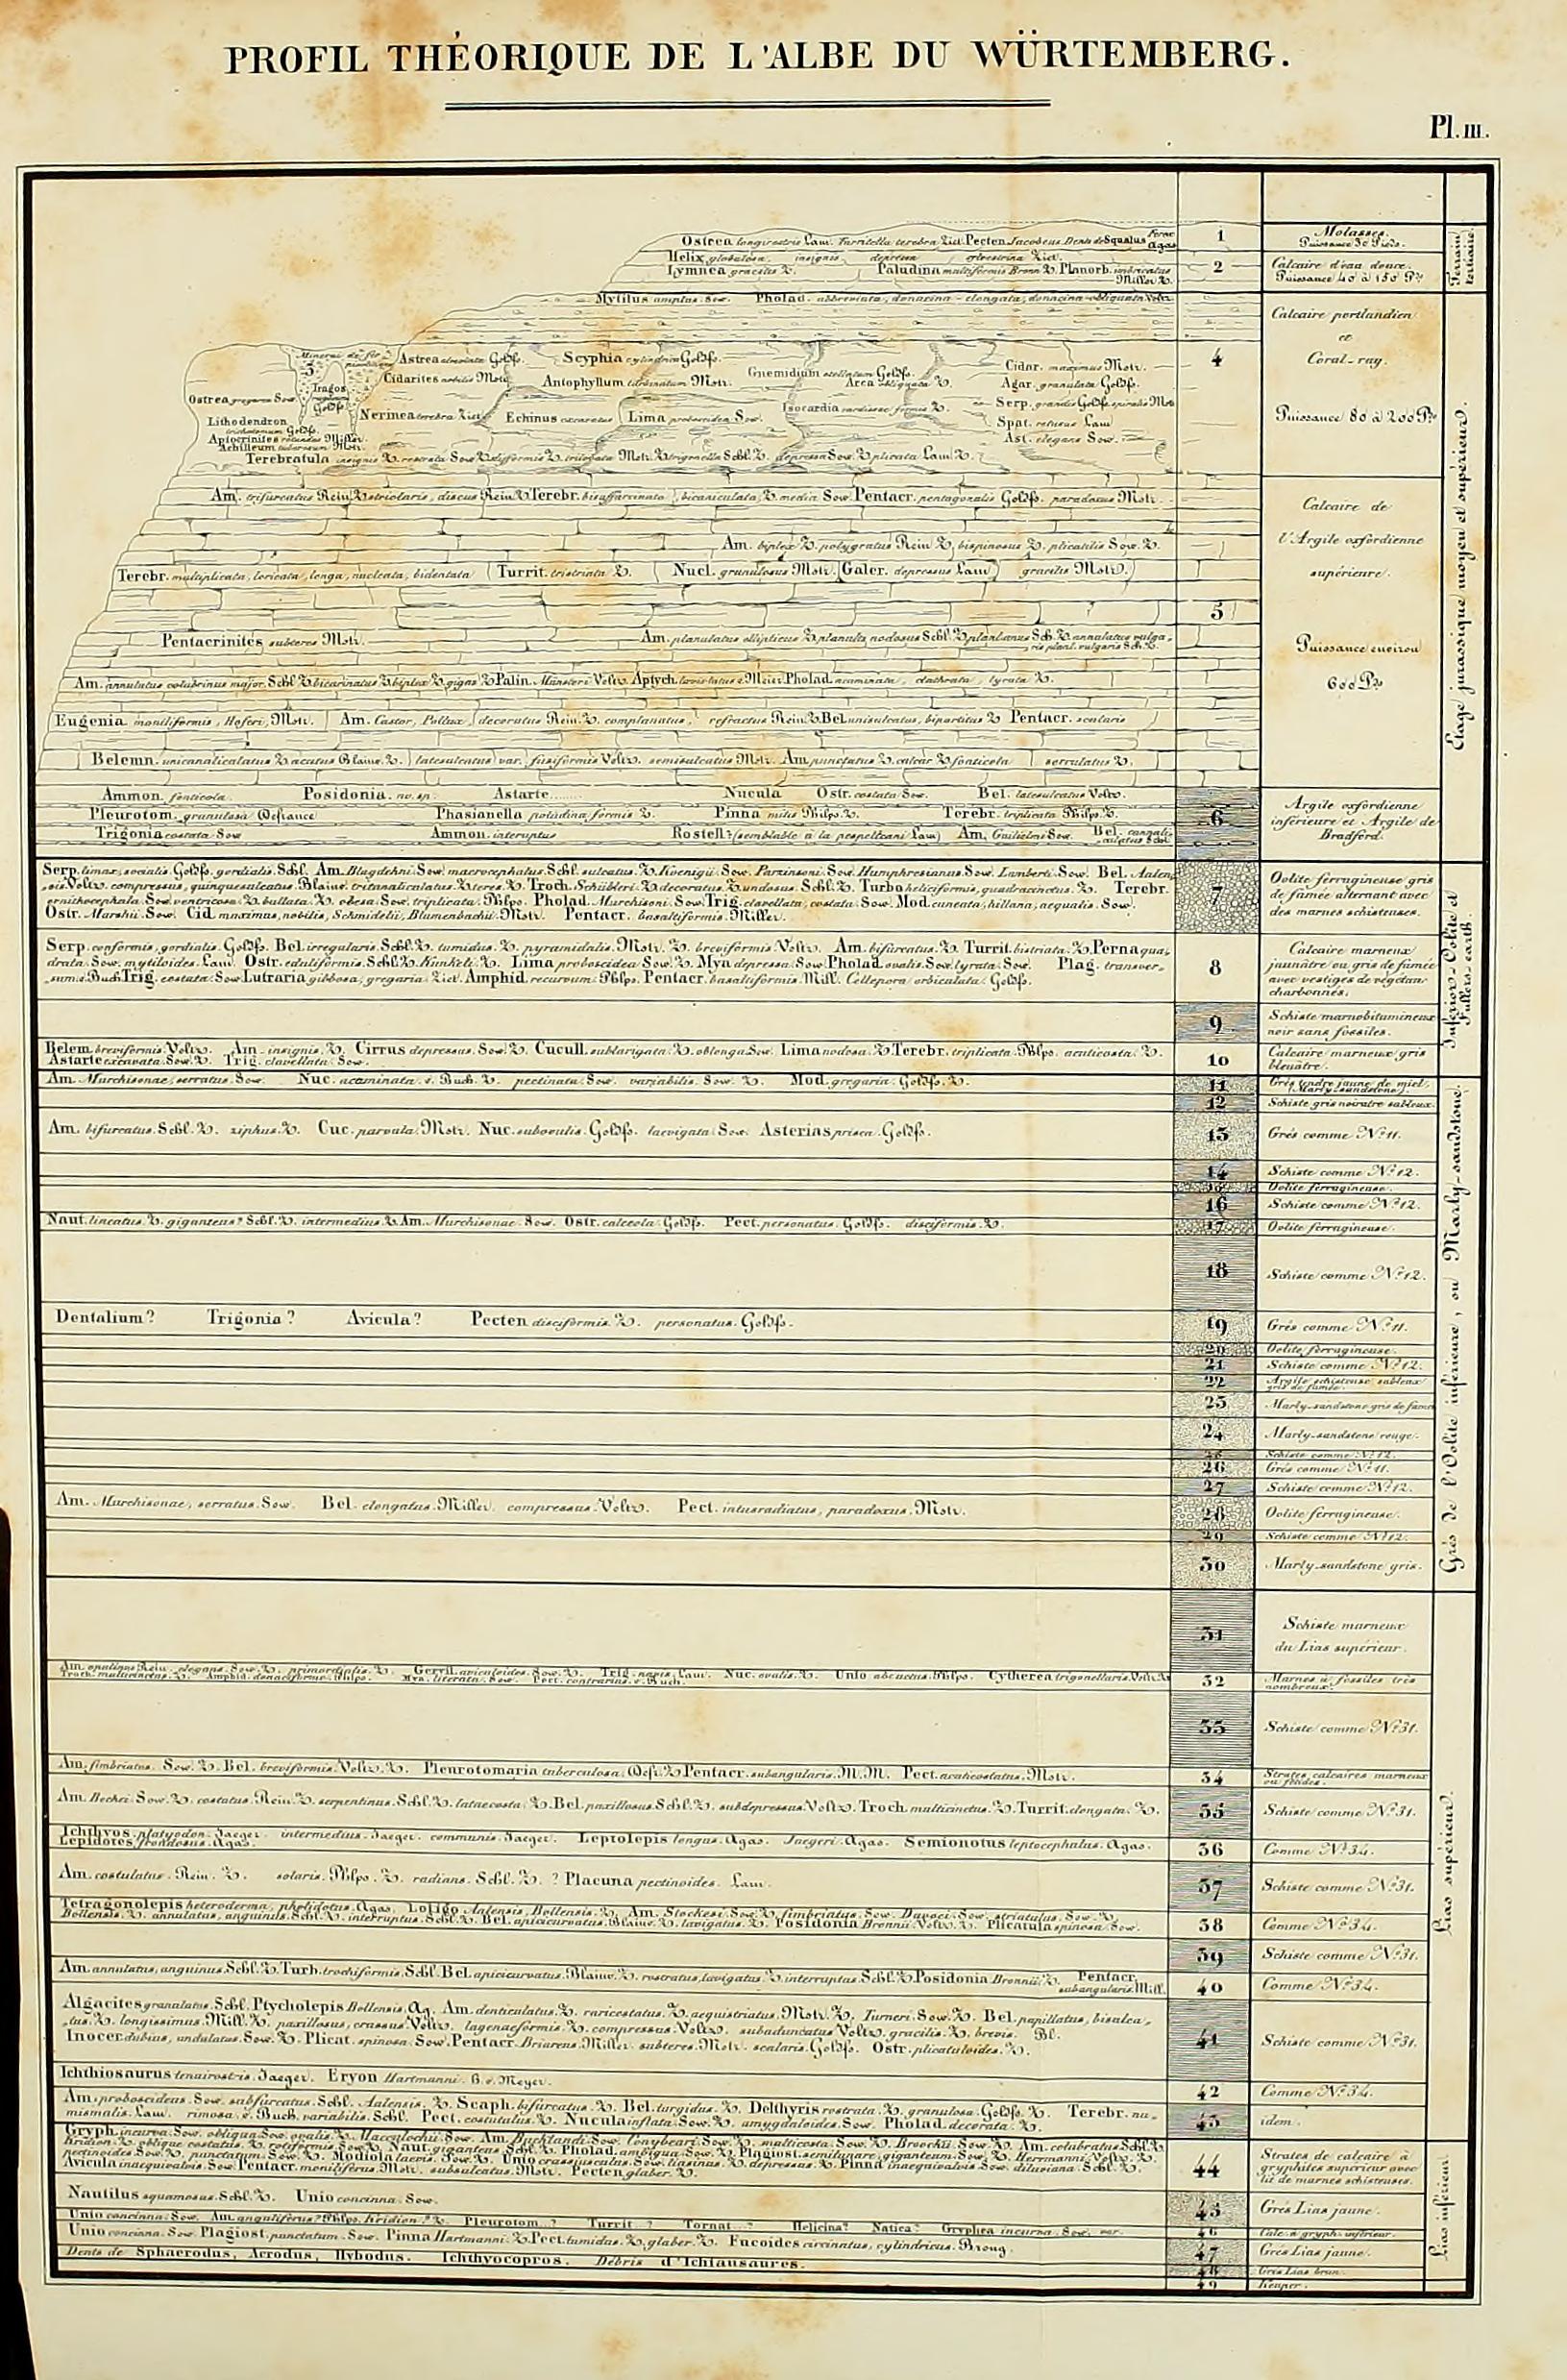 PROFIL THÉORIQUE DE L'ALBE DU WÜRTEMBERG.
Pl. III.
Ostrea longirostris Lam. Turritella terebra Ziet. Pecten Jacobeus Dents de Squalus
1
Molasses.
Puissance 30 Pieds.
Terrain tertiaire.
Helix globulosa, insignis, depressa, sylvestrina Ziet.
Lymnea gracilis Z. Paludina multiformis Bronn Z. Planorb. imbricatus
Miller Z.
2
Calcaire d'eau douce.
Puissance 40 à 150 Pds
Mytilus amplus Sow. Pholad. abbreviata, donacina - elongata, donacina - obliquata Voltz
Minerai de fer
3
Astrea alveolata Goldfs. Scyphia cylindrica Goldfs.
Gnemidium stellatum Goldfs. Cidar. maximus Mstr.
Tragos
Goldfs.
Cidarites nobilis Mstr. Antophyllum turbinatum Mstr. Arca obliquata Z. Agar. granulata Goldfs.
Ostrea gregarea Sow.
Nerinea terebra Ziet. Echinus excavatus Lima proboscidea Sow. Isocardia cardissae formis Z. Serp. grandis Goldfs. spiralis Mstr
Lithodendron
trichotomum Goldfs.
Spat. retusus Lam
Apiocrinites rotundus Miller.
Achilleum tuberosum Mstr.
Ast. elegans Sow.
Terebratula insignis Z. rostrata Sow. Z. difformis Z. trilobata Mstr. Z. trigonella Schl. Z. depressa Sow. Z. plicata Lam Z.
4
Calcaire portlandien
et
Coral-rag.
Puissance 80 à 200 Pds
Am. trifurcatus Rein. Z. striolaris, discus Rein. Z. Terebr. bisuffarcinata, bicaniculata, Z. media Sow. Pentacr. pentagonalis Goldfs. paradoxus Mstr.
Am. biplex Z. polygratus Rein Z. bispinosus Z. plicatilis Sow. Z.
Terebr. multiplicata, loricata, longa, nucleata, bidentata Turrit. tristriata Z. Nucl. granulosus Mstr. Galer. depressus Lam gracilis Mstr.
Pentacrinites subteres Mstr. Am. planulatus ellipticus Z. planula, nodosus Schl. Z. planulatus Sch. Z. annulatus vulga-
ris planl. vulgaris Sch. Z.
Am. annulatus colubrinus major Schl Z. bicarinatus Z. biplex Z. gigas Z. Palin. Münsteri Voltz. Aptych. laevis latus v. Meier Pholad. acuminata, clathrata, lyrata Z.
Eugenia moniliformis, Hoferi, Mstr. Am. Castor, Pollux, decoratus Rein. Z. complanatus, refractus Rein. Z. Bel. unisulcatus, bipartitus Z. Pentacr. scalaris
Belemn. unicanaliculatus Z. acutus Blainv. Z. latesulcatus var. fusiformis Voltz. semisulcatus Mstr. Am. punctatus Z. calcar Z. fonticola serrulatus Z.
5
Calcaire de
l'Argile oxfordienne
supérieure.
Puissance environ
600 Pds
Etage jurassique moyen et supérieur.
Ammon. fonticola. Posidonia. nv. sp. Astarte....... Nucula Ostr. costata Sow. Bel. latesulcatus Voltz.
Pleurotom. granulosa Defrance Phasianella paludina formis Z. Pinna mitis Philps. Z. Terebr. triplicata Philps. Z.
Trigonia costata Sow Ammon. interuptus Rostell: (semblable à la pespelicani Lam) Am. Guilielmi Sow. Bel. canali-
culatus Schl
6
Argile oxfordienne
inférieure et Argile de
Bradford.
Serp. limax, socialis Goldfs. gordialis Schl. Am. Blagdehni Sow. macrocephalus Schl. sulcatus. Z. Koenigii Sow. Parzinsoni Sow. Humphresianus Sow. Lamberti Sow. Bel. Aalen-
-sis Voltz. compressus, quinquesulcatus Blainv. tritanaliculatus Z. teres. Z. Troch. Schübleri Z. decoratus Z. undosus Schl. Z. Turbo heliciformis, quadracinctus. Z. Terebr.
ornithocephala Sow. ventricosa Z. bullata. Z. obesa Sow. triplicata Philps. Pholad. Murchisoni Sow. Trig. clavellata, costata Sow. Mod. cuneata, hillana, aequalis. Sow.
Ostr. Marshii Sow. Cid. maximus, nobilis, Schmidelii, Blumenbachii Mstr. Pentacr. basaltiformis Miller.
7
Oolite ferrugineuse gris
de fumée alternant avec
des marnes schisteuses.
Inferior-Oolite et Fullers-earth.
Serp. conformis, gordialis. Goldfs. Bel. irregularis Schl. Z. tumidus. Z. pyramidalis. Mstr. Z. breviformis Voltz. Am. bifurcatus. Z. Turrit. bistriata. Z. Perna qua-
drata. Sow. mytiloides Lam. Ostr. eduliformis. Schl. Z. Kunkeli. Z. Lima proboscidea Sow. Z. Mya depressa Sow. Pholad. ovalis. Sow. lyrata Sow. Plag. transver-
-sum v. Buch Trig. costata Sow. Lutraria gibbosa, gregaria Ziet. Amphid. recurvum. Phlps. Pentacr. basaltiformis. Mill. Cellepora orbiculata. Goldfs.
8
Calcaire marneux
jaunâtre ou gris de fumée
avec vestiges de végétaux
charbonnés.
9
Schiste marnobitumineux
noir sans fossiles.
Belem. breviformis. Voltz. Am. insignis. Z. Cirrus depressus. Sow. Z. Cucull. sublarigata. Z. oblonga Sow. Lima nodosa. Z. Terebr. triplicata. Phlps. acuticosta. Z.
Astarte excavata. Sow. Z. Trig. clavellata. Sow.
10
Calcaire marneux gris
bleuâtre.
Am. Murchisonae, serratus. Sow. Nuc. acuminata. v. Buch. Z. pectinata. Sow. variabilis. Sow. Z. Mod. gregaria. Goldfs. Z.
11
Grés tendre jaune de miel,
(Marly-sandstone).
12
Schiste gris noirâtre sableux.
Am. bifurcatus. Schl. Z. ziphus. Z. Cuc. parvula. Mstr. Nuc. subovulis. Goldfs. laevigata Sow. Asterias prisca. Goldfs.
13
Grés comme N.º 11.
14
Schiste comme N.º 12.
15
Oolite ferrugineuse.
16
Schiste comme N.º 12.
Naut. lineatus. Z. giganteus? Schl. Z. intermedius. Z. Am. Murchisonae. Sow. Ostr. calceola Goldfs. Pect. personatus. Goldfs. disciformis. Z.
17
Oolite ferrugineuse.
18
Schiste comme N.º 12.
Dentalium? Trigonia? Avicula? Pecten disciformis. Z. personatus. Goldfs.
19
Grés comme N.º 11.
20
Oolite ferrugineuse.
21
Schiste comme N.º 12.
22
Argile schisteuse sableux
gris de fumée.
23
Marly-sandstone gris de fumée
24
Marly-sandstone rouge.
25
Schiste comme N.º 12.
26
Grés comme N.º 11.
27
Schiste comme N.º 12.
Am. Murchisonae, serratus. Sow. Bel. elongatus. Miller. compressus. Voltz. Pect. intusradiatus, paradoxus. Mstr.
28
Oolite ferrugineuse.
29
Schiste comme N.º 12.
30
Marly-sandstone gris.
Grés de l'Oolite inférieure, ou Marly-sandstone.
31
Schiste marneux
du Lias supérieur.
Am. opalinus Rein. elegans. Sow. Z. primordialis. Z. Gervil. aviculoides. Sow. Z. Trig. navis. Lam. Nuc. ovalis. Z. Unio abductus. Phlps. Cytherea trigonellaris. Voltz.
Troch. multicinctus. Z. Amphid. donaciforme. Phlps. Mya. literata. Sow. Pect. contrarius. v. Buch.
32
Marnes à fossiles très
nombreux.
33
Schiste comme N.º 31.
Am. fimbriatus. Sow. Z. Bel. breviformis. Voltz. Z. Pleurotomaria tuberculosa. Defr. Z. Pentacr. subangularis. M. M. Pect. acuticostatus. Mstr.
34
Strates calcaires marneux
ou fétides.
Am. Bechei. Sow. Z. costatus. Rein. Z. serpentinus. Schl. Z. lataecosta. Z. Bel. paxillosus. Schl. Z. subdepressus. Voltz. Troch. multicinctus. Z. Turrit. elongata. Z.
35
Schiste comme N.º 31.
Ichthyos. platyodon. Jaeger. intermedius. Jaeger. communis. Jaeger. Leptolepis longus. Agas. Jaegeri. Agas. Semionotus leptocephalus. Agas.
Lepidotes frondosus. Agas.
36
Comme N.º 34.
Am. costulatus. Rein. Z. solaris. Phlps. Z. radians. Schl. Z. ? Placuna pectinoides. Lam.
37
Schiste comme N.º 31.
Tetragonolepis heteroderma, pholidotus. Agas. Loligo Aalensis, Bollensis. Z. Am. Stockesi Sow. Z. fimbriatus. Sow. Davoei. Sow. striatulus. Sow. Z.
Bollensis. Z. annulatus, anguinus. Schl. Z. interruptus. Schl. Z. Bel. apicicurvatus. Blainv. Z. lavigatus. Z. Posidonia Bronnii Voltz. Z. Plicatula spinosa. Sow.
38
Comme N.º 34.
39
Schiste comme N.º 31.
Am. annulatus, anguinus. Schl. Z. Turb. trochiformis. Schl. Bel. apicicurvatus. Blainv. Z. rostratus, lavigatus. Z. interruptus. Schl. Z. Posidonia Bronnii. Z. Pentacr.
subangularis. Mill.
40
Comme N.º 34.
Algacites granulatus. Schl. Ptycholepis Bollensis. Ag. Am. denticulatus. Z. raricostatus. Z. aequistriatus. Mstr. Z. Turneri. Sow. Z. Bel. papillatus, bisulca-
-tus. Z. longissimus. Mill. Z. paxillosus, crassus Voltz. lagenaeformis. Z. compressus. Voltz. subaduncatus Voltz. gracilis. Z. brevis. Bl.
Inocer. dubius, undulatus. Sow. Z. Plicat. spinosa. Sow. Pentacr. Briareus. Miller. subteres. Mstr. scalaris. Goldfs. Ostr. plicatuloides. Z.
41
Schiste comme N.º 31.
Ichthiosaurus tenuirostris. Jaeger. Eryon Hartmanni. H. v. Meyer.
42
Comme N.º 34.
Am. proboscideus. Sow. subfurcatus. Schl. Aalensis. Z. Scaph. bifurcatus. Z. Bel. turgidus. Z. Delthyris rostrata. Z. granulosa. Goldfs. Z. Terebr. nu-
mismalis. Lam. rimosa. v. Buch. variabilis. Schl. Pect. costutulus. Z. Nucula inflata. Sow. Z. amygdaloides. Sow. Pholad. decorata. Z.
43
idem.
Lias supérieur.
Gryph. incurva. Sow. obliqua. Sow. ovalis. Z. Maccullochii Sow. Am. Bucklandi. Sow. Conybeari. Sow. Z. multicosta. Sow. Z. Broockii. Sow. Z. Am. colubratus Schl. Z.
Kridion. Z. oblique costatus. Z. rotiformis. Sow. Z. Naut. giganteus. Schl. Z. Pholad. ambigua. Sow. Z. Plagiost. semilunare, giganteum. Sow. Z. Herrmanni. Voltz. Z.
pectinoides. Sow. Z. punctatum. Sow. Z. Modiola laevis. Sow. Z. Unio crassiusculus. Sow. liasinus. Z. depressus. Z. Pinna inaequivalvis Sow. diluviana. Schl. Z.
Avicula inaequivalvis. Sow. Pentacr. moniliferus. Mstr. subsulcatus. Mstr. Pecten glaber. Z.
44
Strates de calcaire à
gryphites supérieur avec
lit de marnes schisteuses.
Nautilus squamosus. Schl. Z. Unio concinna. Sow.
45
Grés Lias jaune.
Unio concinna. Sow. Am. anguliferus? Phlps. Kridion? Z. Pleurotom? Turrit? Tornat? Helicina? Natica? Gryphea incurva. Sow. var.
46
Calc. à gryph. inférieur.
Unio concinna. Sow. Plagiost. punctatum. Sow. Pinna Hartmanni. Z. Pect. tumidus. Z. glaber. Z. Fucoides circinnatus, cylindricus. Brong.
47
Grés Lias jaune.
Dents de Sphaerodus, Acrodus, Hybodus. Ichthyocopros. Débris d'Ichtiausaures.
48
Grés Lias brun.
49
Keuper.
Lias inférieur.